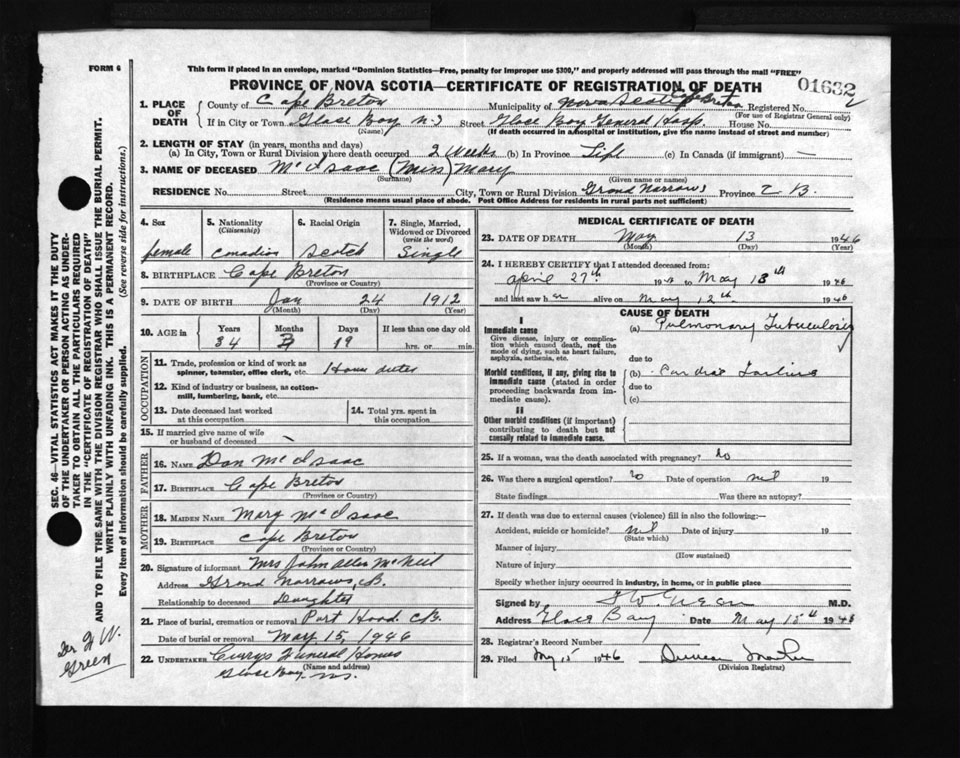 FORM 6
This form if placed in an envelope, marked "Dominion Statistics—Free, penalty for improper use $300," and properly addressed will pass through the mail "FREE"
PROVINCE OF NOVA SCOTIA—CERTIFICATE OF REGISTRATION OF DEATH
01632
1. PLACE OF DEATH
County of Cape Breton
Municipality of Nova Scotia Cape Breton Registered No.
(For use of Registrar General only)
If in City or Town Glace Bay N.S Street Glace Bay General Hosp. House No.
(Name) (If death occurred in a hospital or institution, give the name instead of street and number)
2. LENGTH OF STAY (in years, months and days)
(a) In City, Town or Rural Division where death occurred 2 Weeks (b) In Province Life (c) In Canada (if immigrant) —
3. NAME OF DECEASED McIsaac (Miss) Mary
(Surname) (Given name or names)
RESIDENCE No. Street City, Town or Rural Division Grand Narrows Province C B.
(Residence means usual place of abode. Post Office Address for residents in rural parts not sufficient)
4. Sex female
5. Nationality (Citizenship) canadian
6. Racial Origin Scotch
7. Single, Married, Widowed or Divorced (write the word) Single
8. BIRTHPLACE Cape Breton
(Province or Country)
9. DATE OF BIRTH Jan 24 1912
(Month) (Day) (Year)
10. AGE in Years 34 Months 3 Days 19 If less than one day old hrs. or min.
OCCUPATION
11. Trade, profession or kind of work as spinner, teamster, office clerk, etc. House duties
12. Kind of industry or business, as cotton-mill, lumbering, bank, etc.
13. Date deceased last worked at this occupation
14. Total yrs. spent in this occupation
15. If married give name of wife or husband of deceased
FATHER
16. NAME Dan McIsaac
17. BIRTHPLACE Cape Breton
(Province or Country)
MOTHER
18. MAIDEN NAME Mary McIsaac
19. BIRTHPLACE Cape Breton
(Province or Country)
20. Signature of informant Mrs John Allen McNeil
Address Grand Narrows, C.B.
Relationship to deceased Daughter
21. Place of burial, cremation or removal Port Hood C.B.
Date of burial or removal May 15, 1946
22. UNDERTAKER Currys Funeral Homes
(Name and address)
Glace Bay N.S.
MEDICAL CERTIFICATE OF DEATH
23. DATE OF DEATH May 13 1946
(Month) (Day) (Year)
24. I HEREBY CERTIFY that I attended deceased from:
April 27th 19 to May 13th 1946
and last saw her alive on May 12th 1946
CAUSE OF DEATH
I
Immediate cause
Give disease, injury or complication which caused death, not the mode of dying, such as heart failure, asphyxia, asthenia, etc.
(a) Pulmonary Tuberculosis
due to
Morbid conditions, if any, giving rise to immediate cause (stated in order proceeding backwards from immediate cause).
(b) Cardiac Failure
due to
(c)
II
Other morbid conditions (if important) contributing to death but not causally related to immediate cause.
25. If a woman, was the death associated with pregnancy? No
26. Was there a surgical operation? No Date of operation nil 19
State findings Was there an autopsy?
27. If death was due to external causes (violence) fill in also the following:—
Accident, suicide or homicide? nil Date of injury 19
(State which)
Manner of injury
(How sustained)
Nature of injury
Specify whether injury occurred in industry, in home, or in public place
Signed by M.D.
Address Glace Bay Date May 15th 1946
28. Registrar's Record Number
29. Filed My 15 1946 Duncan
(Division Registrar)
SEC. 46—VITAL STATISTICS ACT MAKES IT THE DUTY
OF THE UNDERTAKER OR PERSON ACTING AS UNDER-
TAKER TO OBTAIN ALL THE PARTICULARS REQUIRED
IN THE "CERTIFICATE OF REGISTRATION OF DEATH"
AND TO FILE THE SAME WITH THE DIVISION REGISTRAR WHO SHALL ISSUE THE BURIAL PERMIT.
WRITE PLAINLY WITH UNFADING INK. THIS IS A PERMANENT RECORD.
Every item of Information should be carefully supplied. (See reverse side for instructions.)
W.
Green